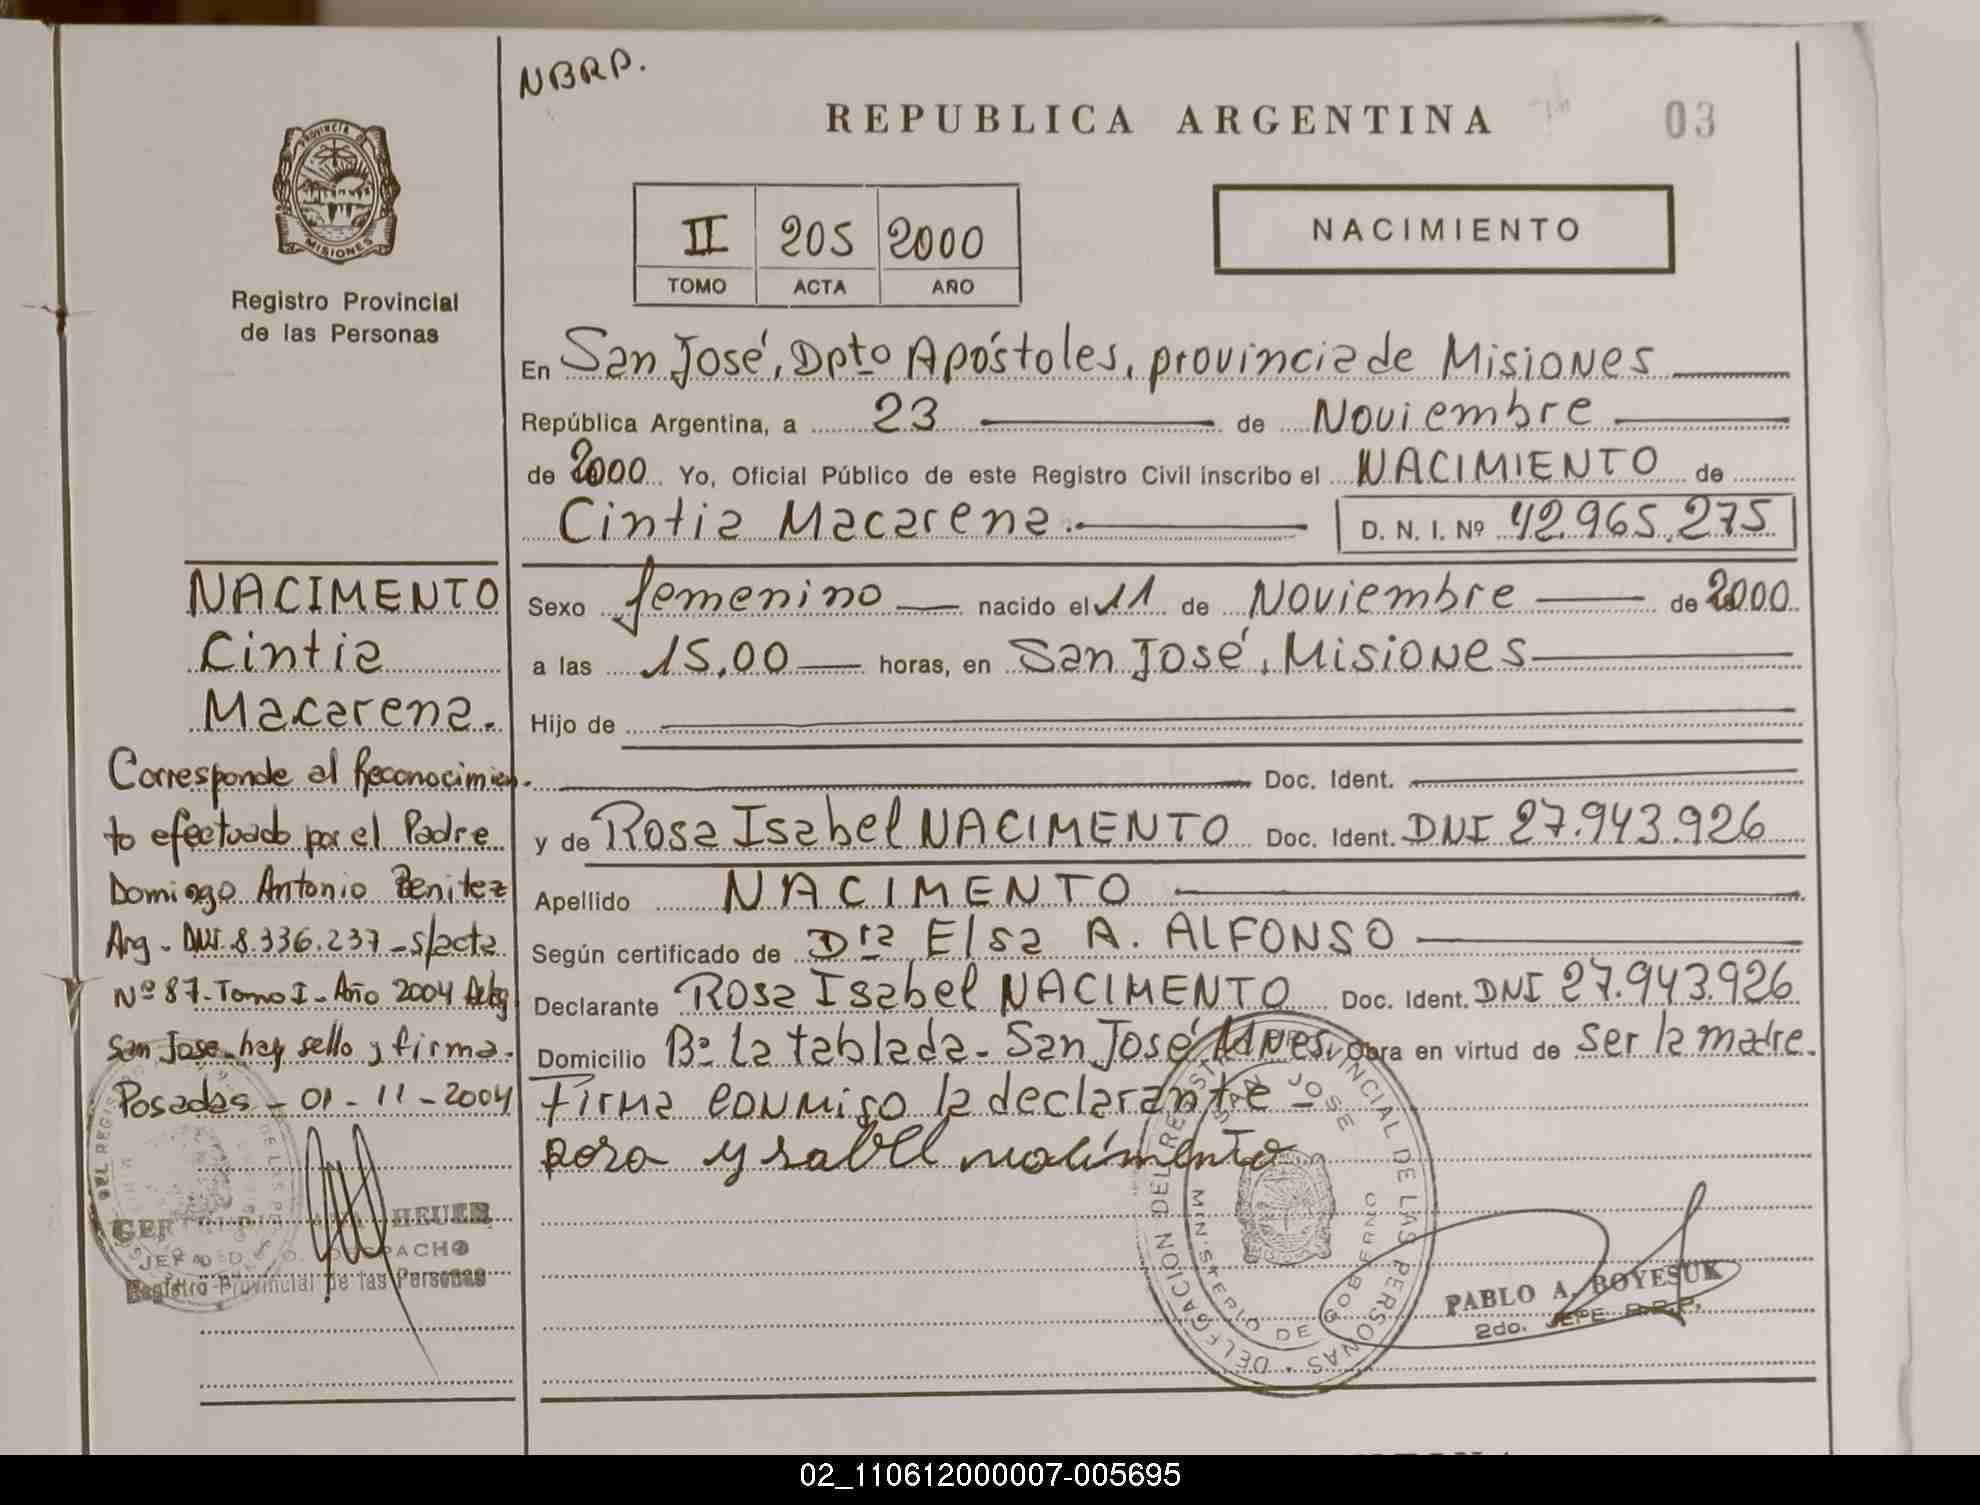 NBRP.
REPUBLICA ARGENTINA
03
PROVINCIA D
MISIONES
Registro Provincial
de las Personas
II 205 2000
TOMO ACTA AÑO
NACIMIENTO
En San José, Dpto Apóstoles, provincia de Misiones
República Argentina, a 23 de Noviembre
de 2000 Yo, Oficial Público de este Registro Civil inscribo el NACIMIENTO de
Cintia Macarena. D. N. I. Nº 42.965.275
Sexo femenino nacido el 11 de Noviembre de 2000
a las 15,00 horas, en San José, Misiones
Hijo de
Doc. Ident.
y de Rosa Isabel NACIMENTO Doc. Ident. DNI 27.943.926
Apellido NACIMENTO
Según certificado de Dra Elsa A. ALFONSO
Declarante Rosa Isabel NACIMENTO Doc. Ident. DNI 27.943.926
Domicilio Bº La tablada - San José, Mnes, Obra en virtud de ser la madre.
Firma conmigo la declarante -
rosa ysabel nacimento
NACIMENTO
Cintia
Macarena.
Corresponde al Reconocimien-
to efectuado por el Padre
Domingo Antonio Benitez
Arg - DNI. 8.336.237 - s/acta
Nº 87 - Tomo I - Año 2004 Deleg
San Jose - hay sello y firma.
Posadas - 01 - 11 - 2004
HEUER
Registro Provincial de las Personas
DELEGACION DEL REGISTRO PROVINCIAL DE LAS PERSONAS
SAN JOSE
MINISTERIO DE GOBIERNO
PABLO A. BOYESUK
2do. JEFE R.P.P.
02_110612000007-005695